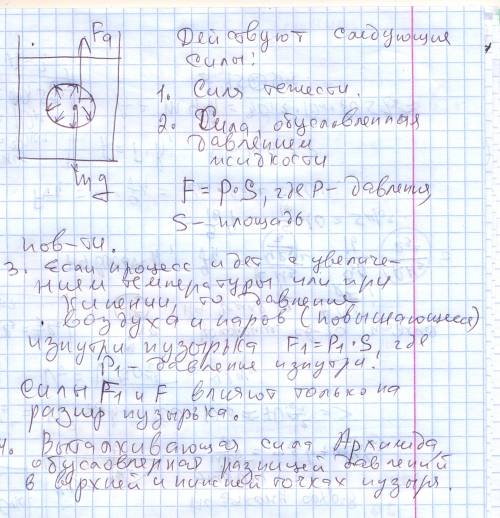 Fa
Действуют следующие
силы:
1. Сила тяжести.
2. Сила, обусловленная
давлением
жидкости
F = P·S, где P – давления,
S – площадь
mg
пов-ти.
3. Если процесс идет с увеличе-
нием температуры или при
кипении, то давление
воздуха и паров (повышающееся)
изнутри пузырька F₁ = P₁·S, где
P₁ – давление изнутри.
Силы F₁ и F влияют только на
размер пузырька.
4. Выталкивающая сила Архимеда
обусловленная разницей давлений
в верхней и нижней точках пузыря.